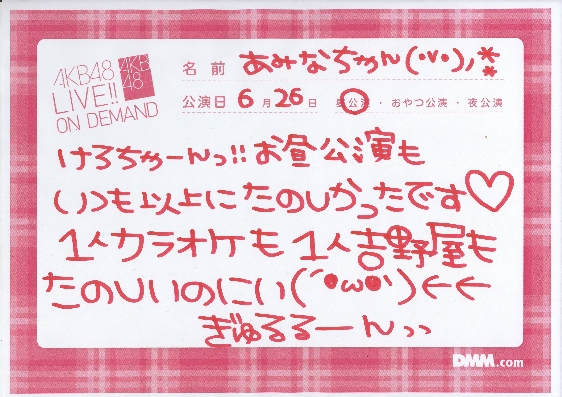 AKB48
LIVE!!
ON DEMAND
AKB
48
名前 あみなちゃん(•v•)ﾉ⁑
公演日 6月26日 昼公演・おやつ公演・夜公演
けろちゃーんっ!!お昼公演も
いつも以上にたのしかったです♡
1人カラオケも1人吉野屋も
たのしいのにい(´•ω•`)←←
ぎゅるるーんっっ
DMM.com